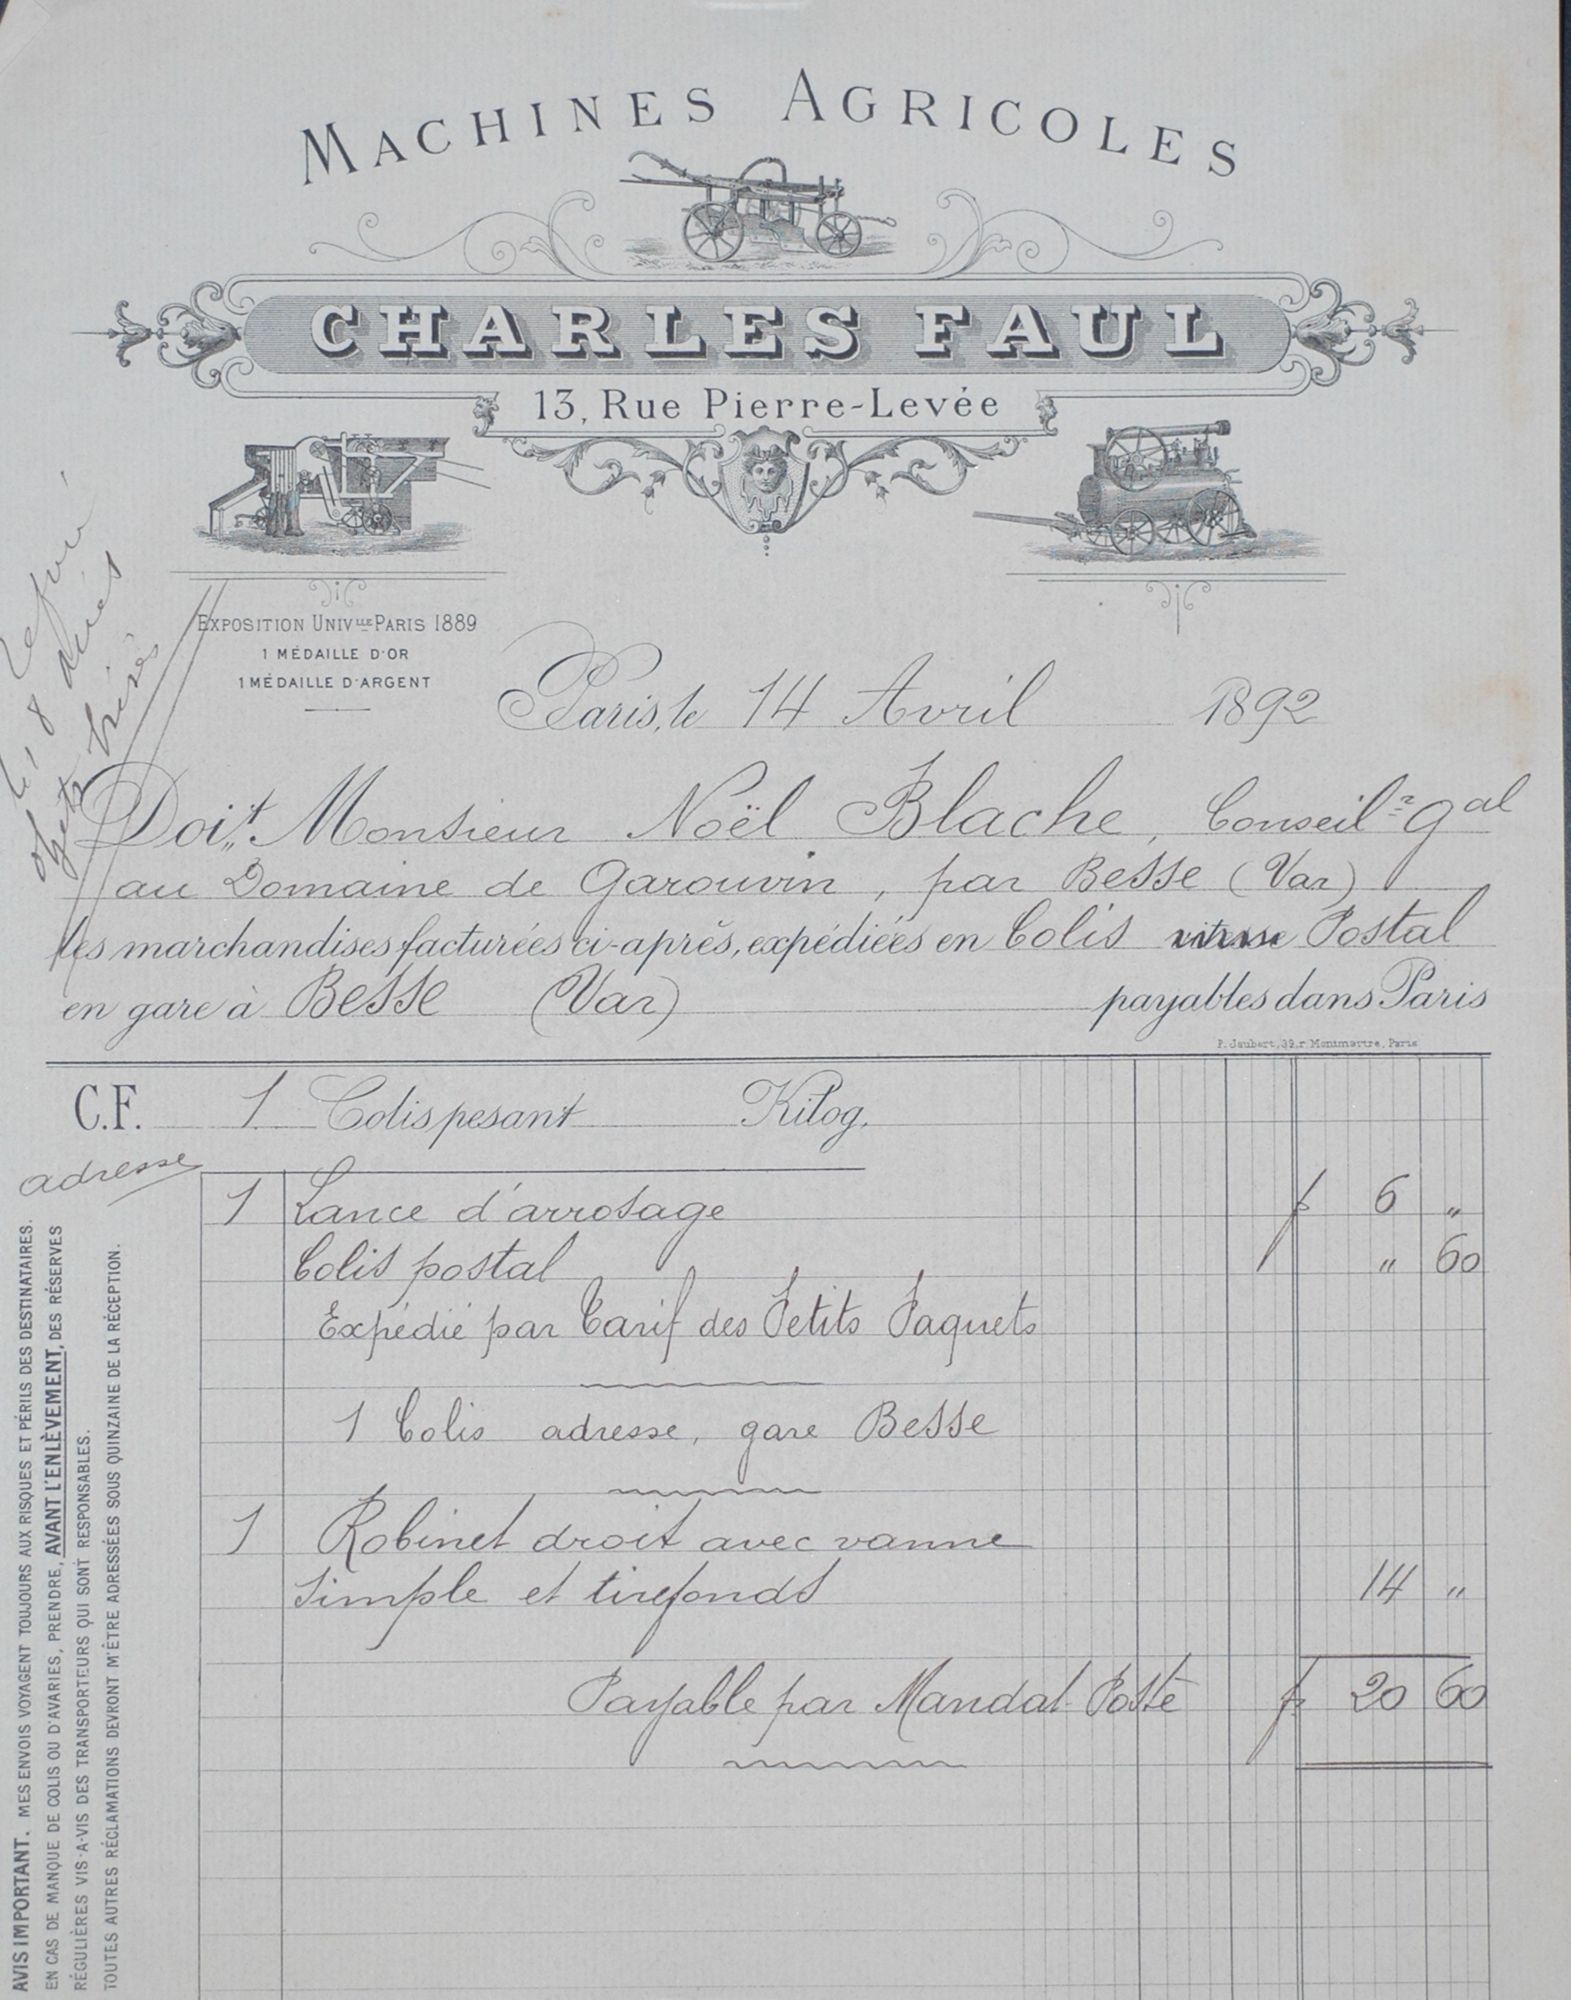 MACHINES AGRICOLES
CHARLES FAUL
13, Rue Pierre-Levée
EXPOSITION UNIVLLE PARIS 1889
1 MÉDAILLE D'OR
1 MÉDAILLE D'ARGENT
Paris, le 14 Avril 1892
Doit Monsieur Noël Blache, Conseilr gal
au Domaine de Garouvin, par Besse (Var)
les marchandises facturées ci-après, expédiées en Colis vitesse Postal
en gare à Besse (Var) payables dans Paris
P. Jaubert, 39, r. Montmartre, Paris
C.F. 1 Colis pesant Kilog.
adresse
1 Lance d'arrosage f 6 "
Colis postal " 60
Expédié par Tarif des Petits Paquets
1 Colis adresse, gare Besse
1 Robinet droit avec vanne
simple et tirefonds 14 "
Payable par Mandat-Poste fr 20 60
AVIS IMPORTANT. MES ENVOIS VOYAGENT TOUJOURS AUX RISQUES ET PÉRILS DES DESTINATAIRES.
EN CAS DE MANQUE DE COLIS OU D'AVARIES, PRENDRE, AVANT L'ENLÈVEMENT, DES RÉSERVES
RÉGULIÈRES VIS-A-VIS DES TRANSPORTEURS QUI SONT RESPONSABLES.
TOUTES AUTRES RÉCLAMATIONS DEVRONT M'ÊTRE ADRESSÉES SOUS QUINZAINE DE LA RÉCEPTION.